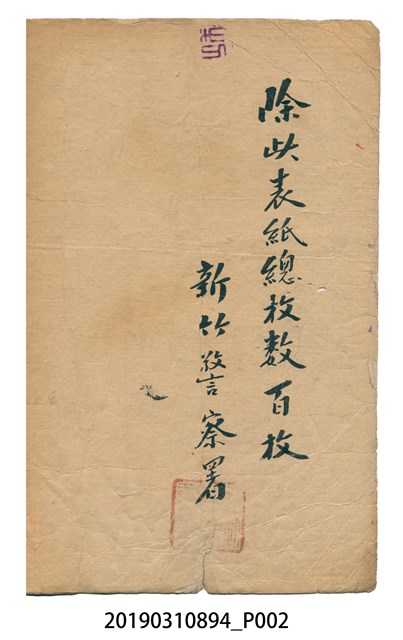 除此表紙總枚数百枚
新竹警察署
20190310894_P002